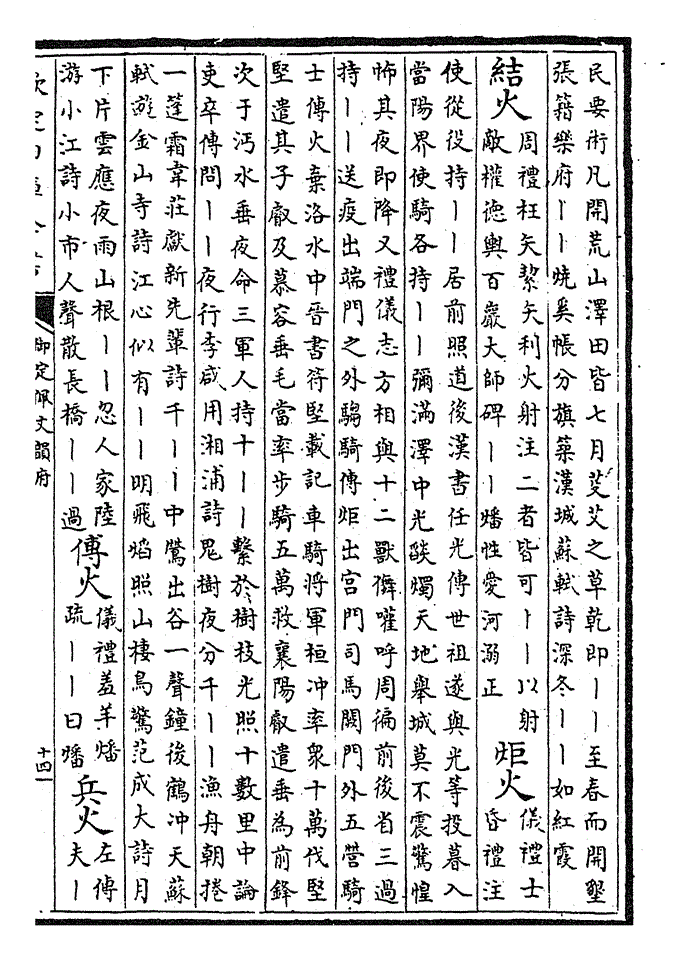 民要術凡開荒山澤田皆七月芟艾之草乾即丨丨至春而開墾
張籍樂府丨丨燒奚帳分旗築漢城蘇軾詩深冬丨丨如紅霞
結火
周禮枉矢絜矢利火射注二者皆可丨丨以射
敵權德輿百巖大師碑丨丨燔性愛河溺正
炬火
儀禮士
昏禮注
使從役持丨丨居前照道後漢書任光傳世祖遂與光等投暮入
當陽界使騎各持丨丨彌滿澤中光燄燭天地舉城莫不震驚惶
怖其夜即降又禮儀志方相與十二獸儛嚾呼周徧前後省三過
持丨丨送疫出端門之外騶騎傳炬出宫門司馬闕門外五營騎
士傳火棄洛水中晉書苻堅載記車騎將軍桓冲率衆十萬伐堅
堅遣其子叡及慕容垂毛當率步騎五萬救襄陽叡遣垂為前鋒
次于沔水垂夜命三軍人持十丨丨繫於樹枝光照十數里中論
吏卒傳問丨丨夜行李咸用湘浦詩鬼樹夜分千丨丨漁舟朝捲
一蓬霜韋莊獻新先輩詩千丨丨中鶯出谷一聲鐘後鶴冲天蘇
軾遊金山寺詩江心似有丨丨明飛焰照山棲鳥驚范成大詩月
下片雲應夜雨山根丨丨忽人家陸
游小江詩小市人聲散長橋丨丨過
傅火
儀禮羞羊燔
疏丨丨曰燔
兵火
左傳
夫丨
御定佩文韻府
十四